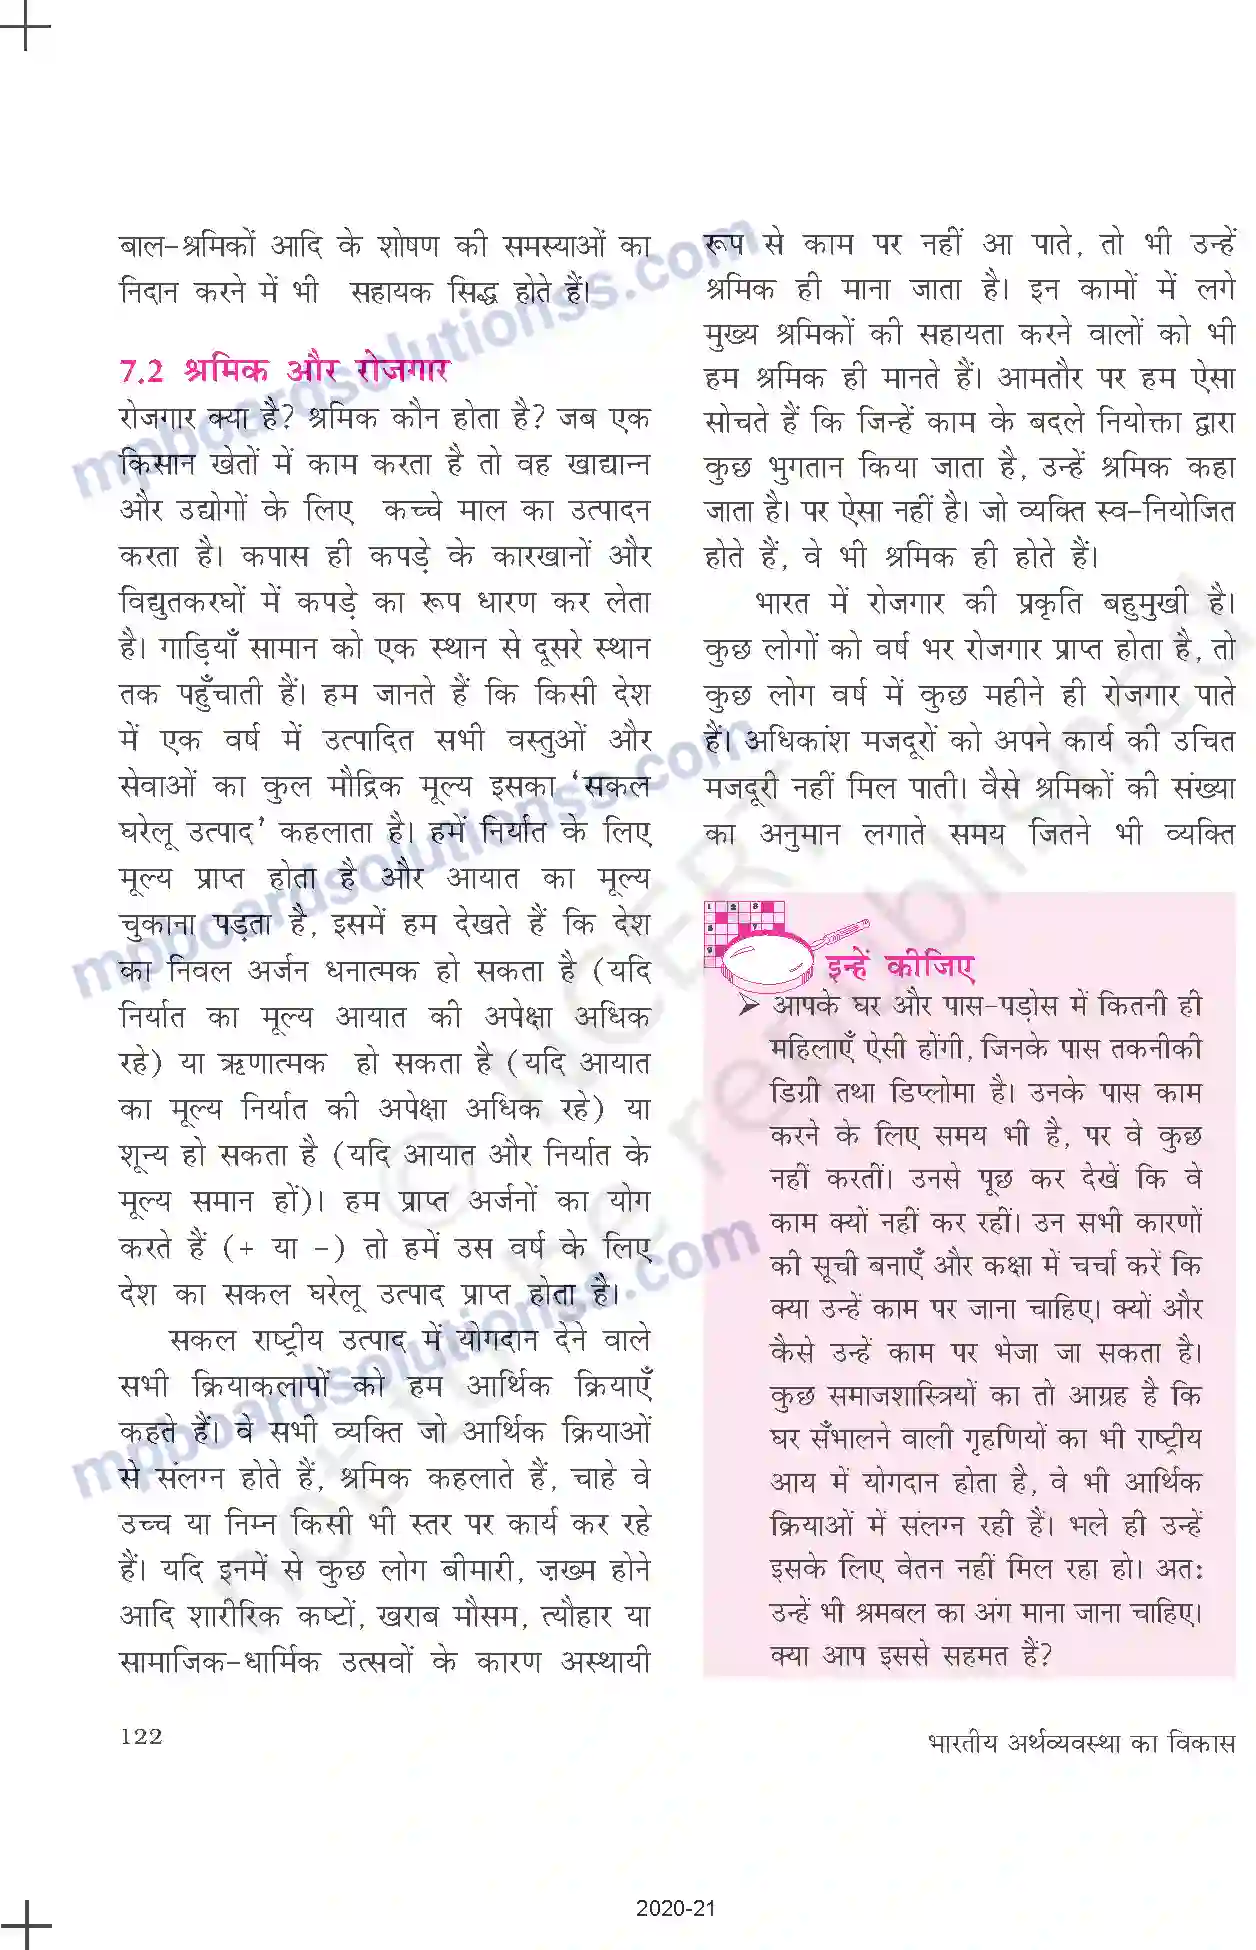 बाल-श्रमिकों आदि के शोषण की समस्याओं का
निदान करने में भी सहायक सिद्ध होते हैं।
7.2 श्रमिक और रोजगार
रोजगार क्या है? श्रमिक कौन होता है? जब एक
किसान खेतों में काम करता है तो वह खाद्यान्न
और उद्योगों के लिए कच्चे माल का उत्पादन
करता है। कपास ही कपड़े के कारखानों और
विद्युतकरघों में कपड़े का रूप धारण कर लेता
है। गाड़ियाँ सामान को एक स्थान से दूसरे स्थान
तक पहुँचाती हैं। हम जानते हैं कि किसी देश
में एक वर्ष में उत्पादित सभी वस्तुओं और
सेवाओं का कुल मौद्रिक मूल्य इसका ‘सकल
घरेलू उत्पाद’ कहलाता है। हमें निर्यात के लिए
मूल्य प्राप्त होता है और आयात का मूल्य
चुकाना पड़ता है, इसमें हम देखते हैं कि देश
का निवल अर्जन धनात्मक हो सकता है (यदि
निर्यात का मूल्य आयात की अपेक्षा अधिक
रहे) या ऋणात्मक हो सकता है (यदि आयात
का मूल्य निर्यात की अपेक्षा अधिक रहे) या
शून्य हो सकता है (यदि आयात और निर्यात के
मूल्य समान हों)। हम प्राप्त अर्जनों का योग
करते हैं (+ या –) तो हमें उस वर्ष के लिए
देश का सकल घरेलू उत्पाद प्राप्त होता है।
सकल राष्ट्रीय उत्पाद में योगदान देने वाले
सभी क्रियाकलापों को हम आर्थिक क्रियाएँ
कहते हैं। वे सभी व्यक्ति जो आर्थिक क्रियाओं
से संलग्न होते हैं, श्रमिक कहलाते हैं, चाहे वे
उच्च या निम्न किसी भी स्तर पर कार्य कर रहे
हैं। यदि इनमें से कुछ लोग बीमारी, ज़ख्म होने
आदि शारीरिक कष्टों, खराब मौसम, त्यौहार या
सामाजिक-धार्मिक उत्सवों के कारण अस्थायी
रूप से काम पर नहीं आ पाते, तो भी उन्हें
श्रमिक ही माना जाता है। इन कामों में लगे
मुख्य श्रमिकों की सहायता करने वालों को भी
हम श्रमिक ही मानते हैं। आमतौर पर हम ऐसा
सोचते हैं कि जिन्हें काम के बदले नियोक्ता द्वारा
कुछ भुगतान किया जाता है, उन्हें श्रमिक कहा
जाता है। पर ऐसा नहीं है। जो व्यक्ति स्व-नियोजित
होते हैं, वे भी श्रमिक ही होते हैं।
भारत में रोजगार की प्रकृति बहुमुखी है।
कुछ लोगों को वर्ष भर रोजगार प्राप्त होता है, तो
कुछ लोग वर्ष में कुछ महीने ही रोजगार पाते
हैं। अधिकांश मजदूरों को अपने कार्य की उचित
मजदूरी नहीं मिल पाती। वैसे श्रमिकों की संख्या
का अनुमान लगाते समय जितने भी व्यक्ति
इन्हें कीजिए
➤ आपके घर और पास-पड़ोस में कितनी ही
महिलाएँ ऐसी होंगी, जिनके पास तकनीकी
डिग्री तथा डिप्लोमा है। उनके पास काम
करने के लिए समय भी है, पर वे कुछ
नहीं करतीं। उनसे पूछ कर देखें कि वे
काम क्यों नहीं कर रहीं। उन सभी कारणों
की सूची बनाएँ और कक्षा में चर्चा करें कि
क्या उन्हें काम पर जाना चाहिए। क्यों और
कैसे उन्हें काम पर भेजा जा सकता है।
कुछ समाजशास्त्रियों का तो आग्रह है कि
घर सँभालने वाली गृहणियों का भी राष्ट्रीय
आय में योगदान होता है, वे भी आर्थिक
क्रियाओं में संलग्न रही हैं। भले ही उन्हें
इसके लिए वेतन नहीं मिल रहा हो। अतः
उन्हें भी श्रमबल का अंग माना जाना चाहिए।
क्या आप इससे सहमत हैं?
122
भारतीय अर्थव्यवस्था का विकास
2020-21
mpboardsolutionss.com
mpboardsolutionss.com
mpboardsolutionss.com
© NCERT
not to be republished